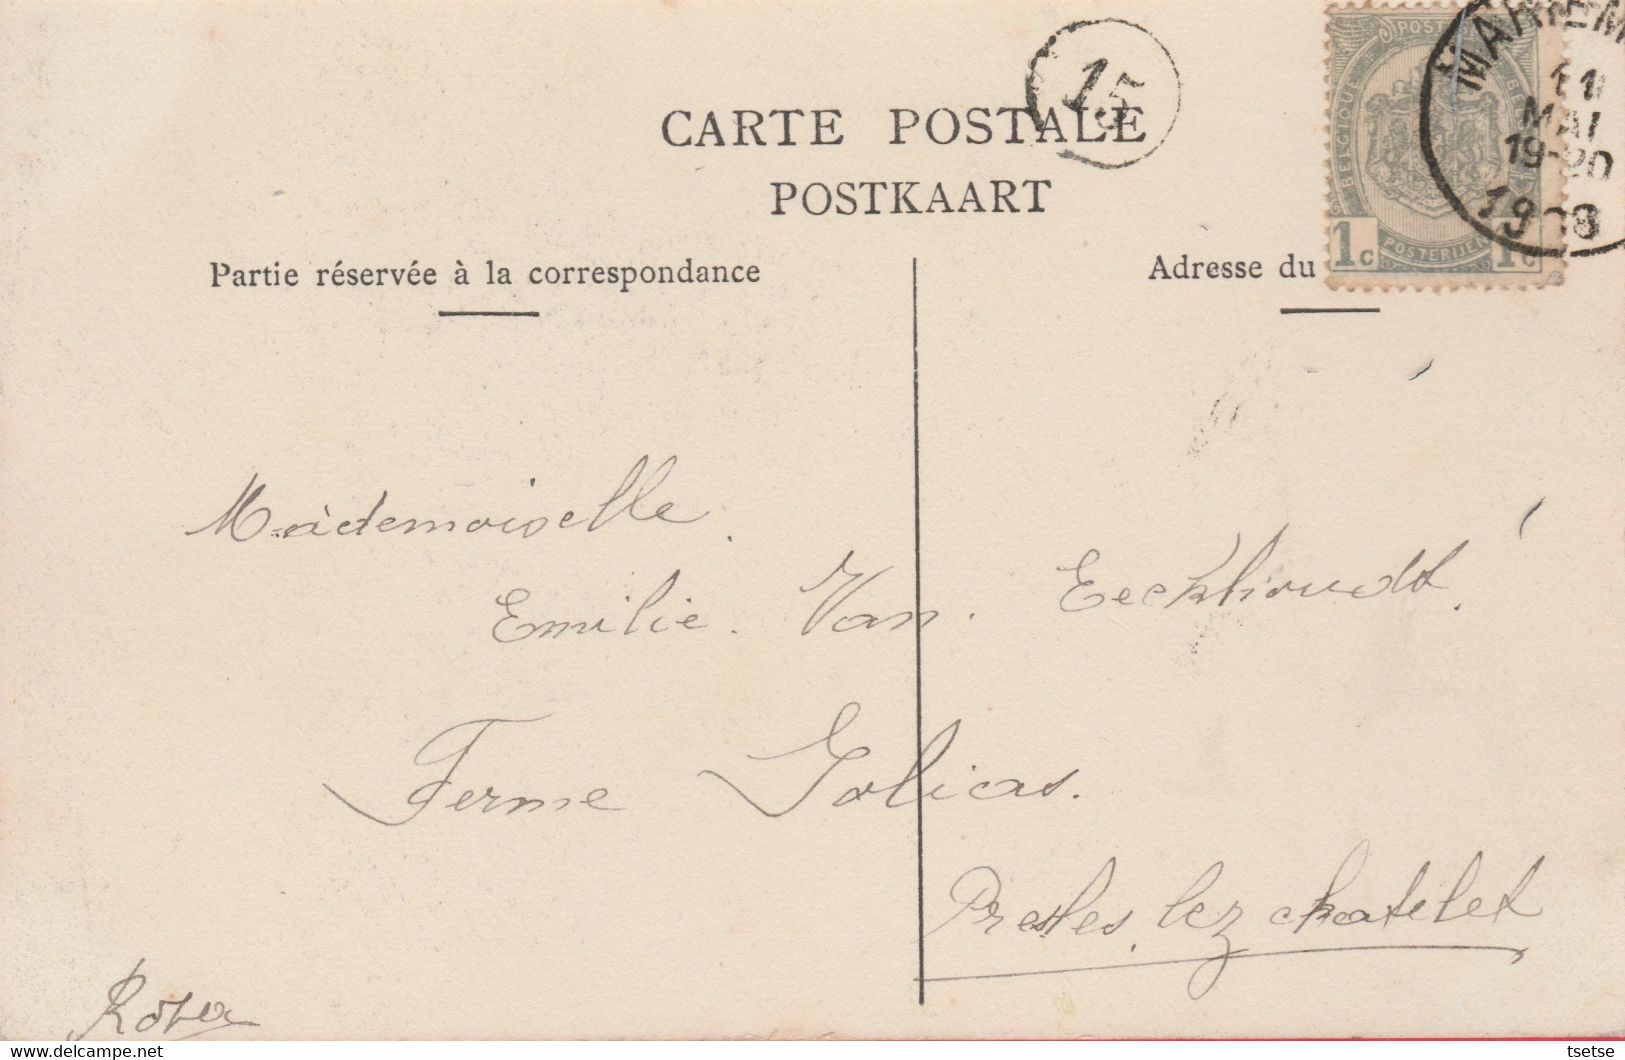 15
CARTE POSTALE
POSTKAART
MARIEM
11
MAI
19-20
1908
BELGIQUE
POSTERIJEN
1c 1c
Partie réservée à la correspondance
Adresse du
Mademoiselle.
Emilie. Van. Eeckhoudt.
Ferme Golias.
Presles. lez chatelet
www.delcampe.net
tsetse